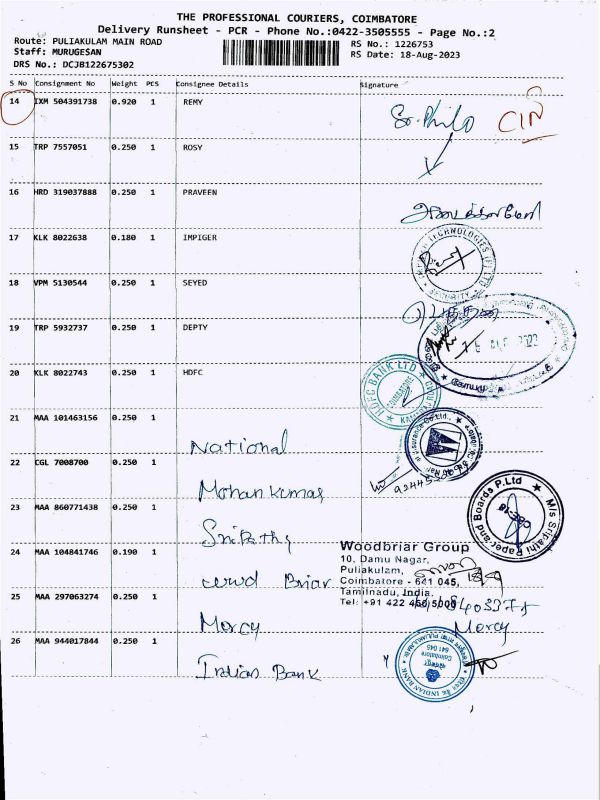 THE PROFESSIONAL COURIERS, COIMBATORE
Delivery Runsheet - PCR - Phone No.:0422-3505555 - Page No.:2
Route: PULIAKULAM MAIN ROAD
RS No.: 1226753
Staff: MURUGESAN
RS Date: 18-Aug-2023
DRS No.: DCJB122675302
S No Consignment No Weight PCS Consignee Details Signature
14 IXM 504391738 0.920 1 REMY
CIN
15 TRP 7557051 0.250 1 ROSY
16 HRD 319037888 0.250 1 PRAVEEN
17 KLK 8022638 0.180 1 IMPIGER
18 VPM 5130544 0.250 1 SEYED
19 TRP 5932737 0.250 1 DEPTY
20 KLK 8022743 0.250 1 HDFC
HDFC BANK LTD
COIMBATORE
21 MAA 101463156 0.250 1 National
22 CGL 7008700 0.250 1 Mohan Kumar
23 MAA 860771438 0.250 1 Sripathy
M/s Sripathi Paper and Boards P.Ltd
CBE-18
24 MAA 104841746 0.190 1 Briar
Woodbriar Group
10, Damu Nagar,
Puliakulam,
Coimbatore - 641 045,
Tamilnadu, India.
Tel: +91 422
25 MAA 297063274 0.250 1 Mercy
Mercy
26 MAA 944017844 0.250 1 Indian Bank
INDIAN BANK
Coimbatore
641 045